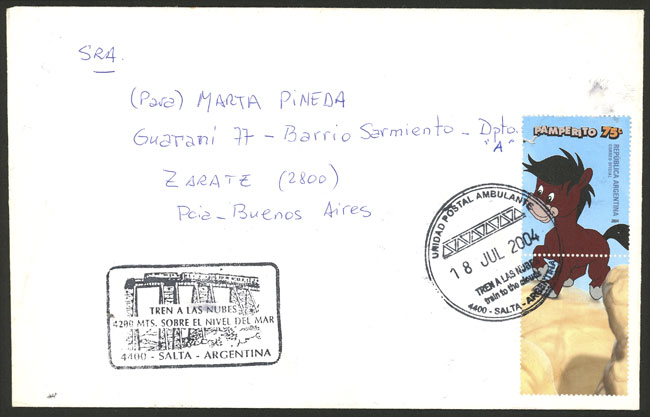 SRA.
(Para) MARTA PINEDA
Guaraní 77 - Barrio Sarmiento - Dpto. "A"
ZARATE (2800)
Pcia - Buenos Aires
PAMPERITO 75c
REPÚBLICA ARGENTINA
CORREO OFICIAL
UNIDAD POSTAL AMBULANTE
18 JUL 2004
TREN A LAS NUBES
train to the clouds
4400 - SALTA - ARGENTINA
TREN A LAS NUBES
4200 MTS. SOBRE EL NIVEL DEL MAR
4400 - SALTA - ARGENTINA